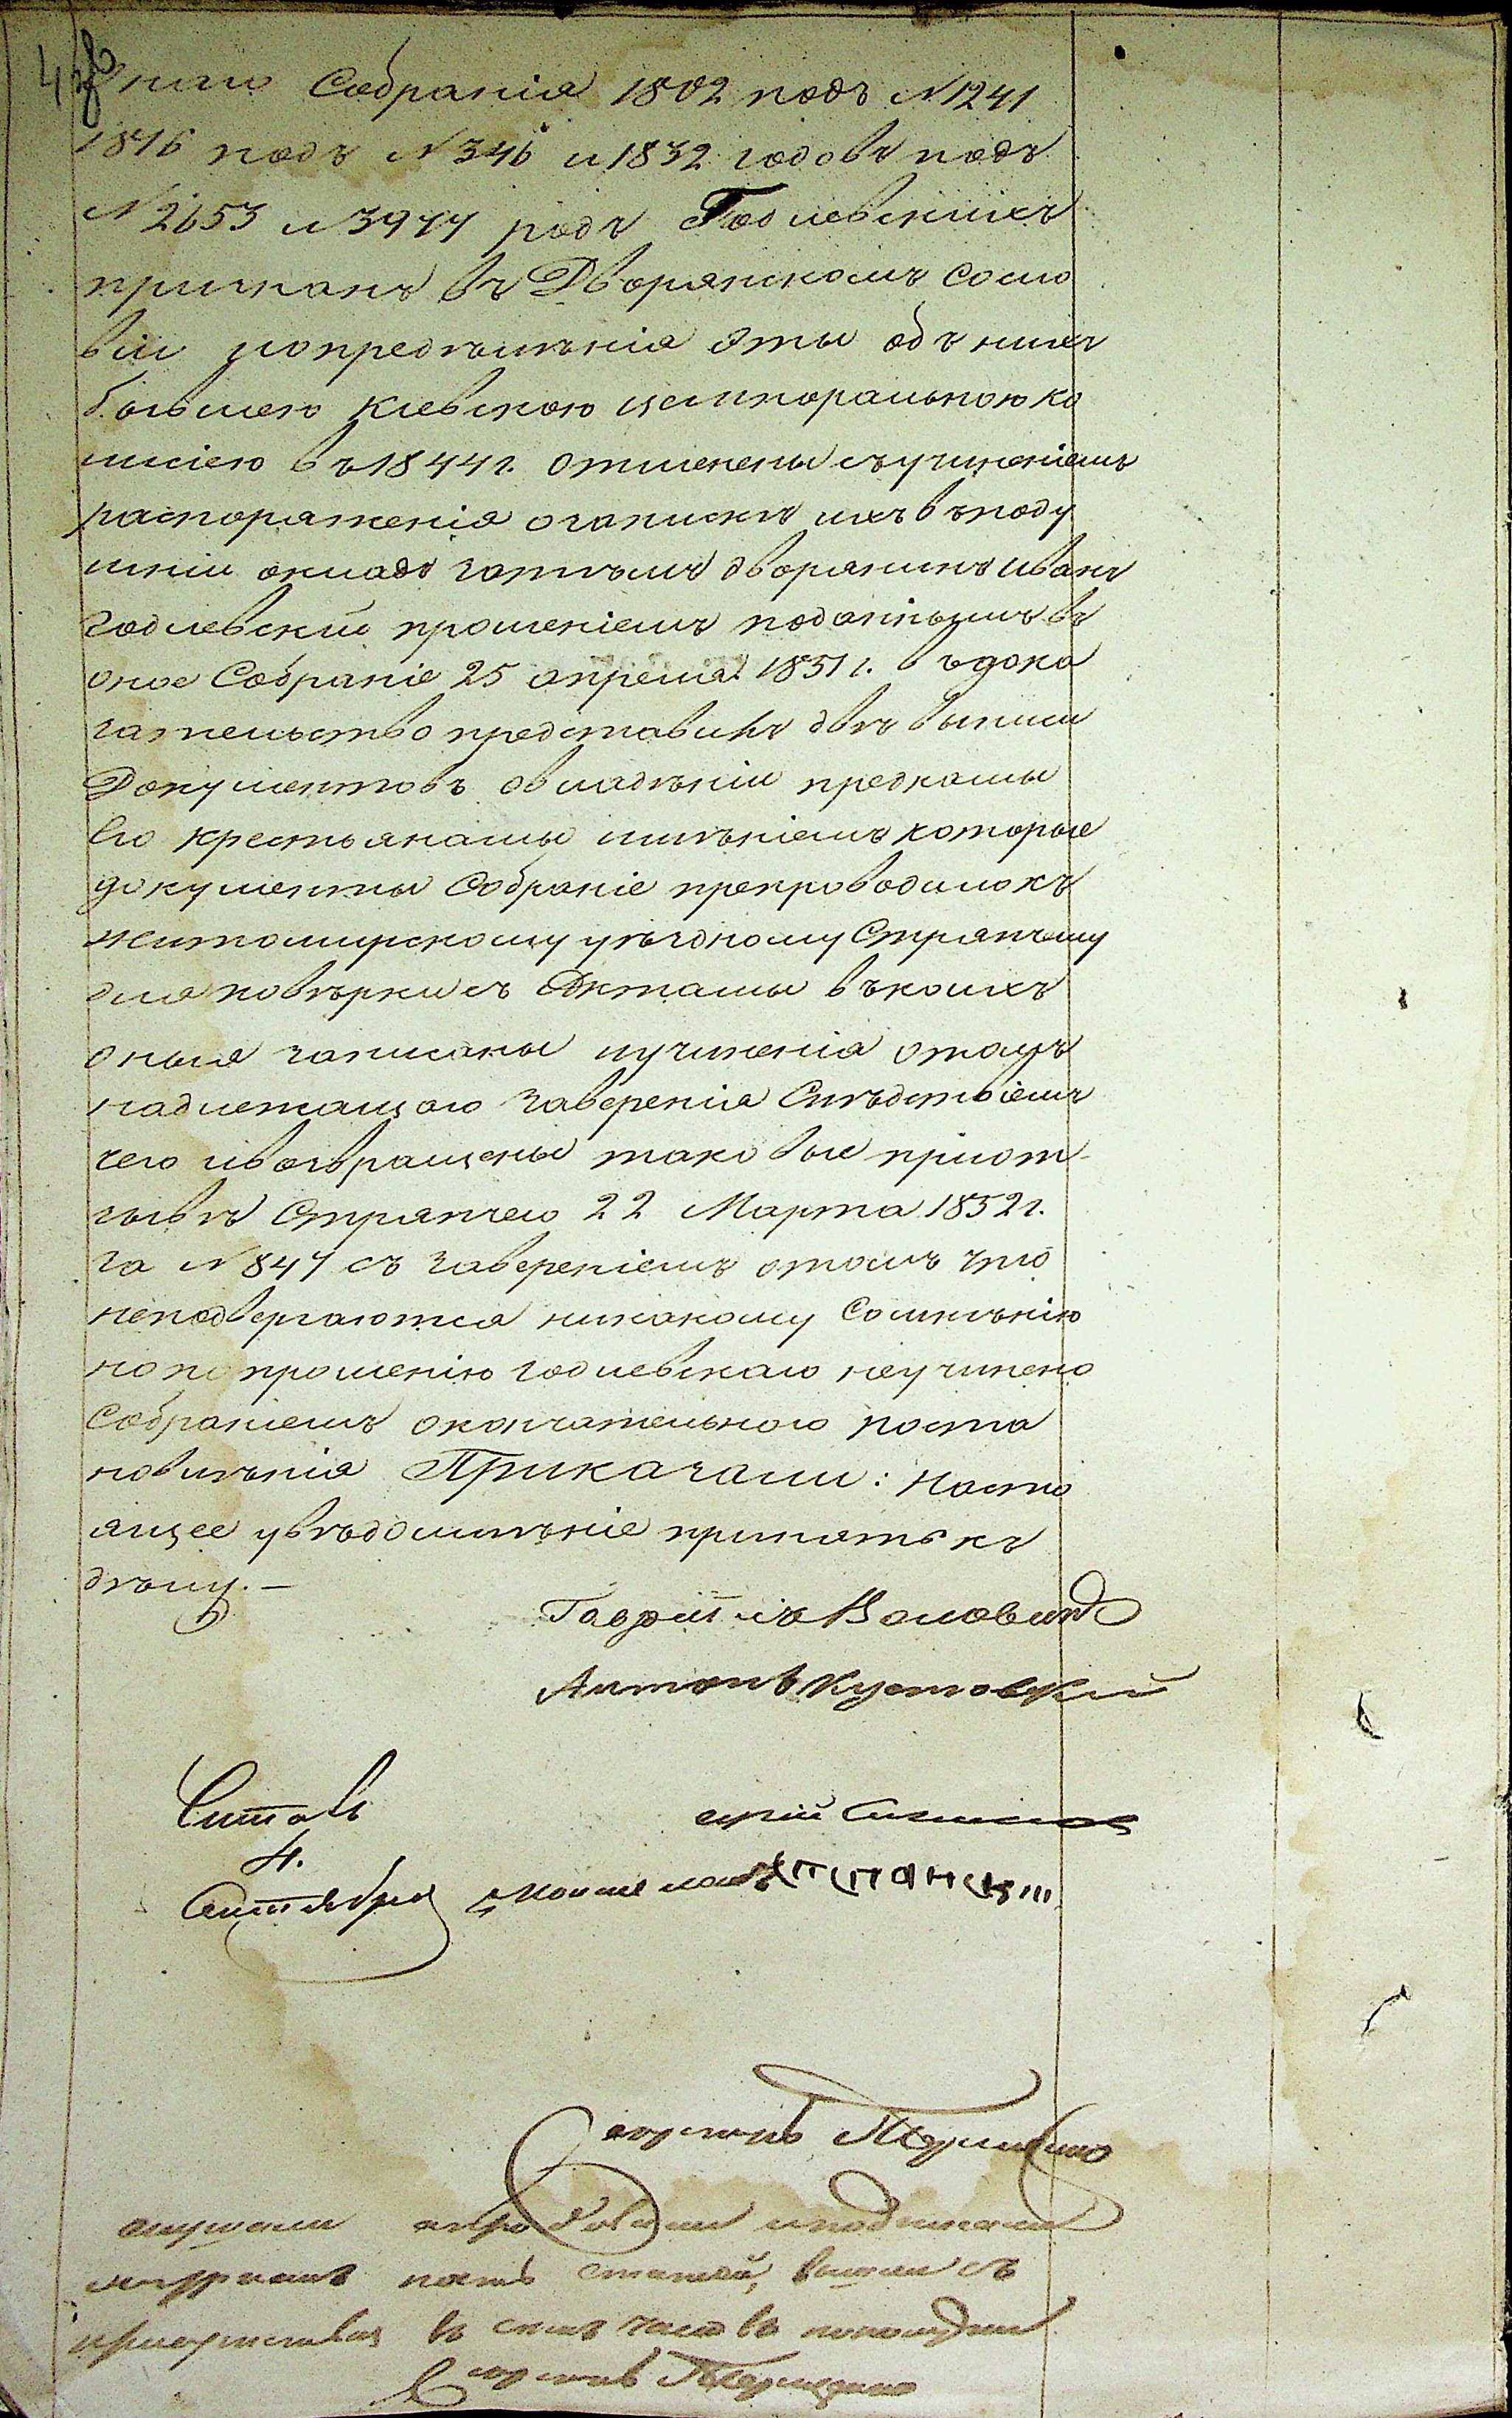 наго Собранія 1802 подъ N 1241
1816 подъ N 346 и 1832 годовъ подъ
N 2653 и 3977 родъ Годлевскихъ
признанъ въ Дворянскомъ сосло
віи но предѣленія эты объ нихъ
бывшею Кіевскою центральною ко
мисіею въ 1844 г. отменены съ учиненіемъ
распоряженія о запискѣ ихъ въ поду
шній окладъ затѣмъ дворянинъ Иванъ
Годлевскій прошеніемъ поданнымъ въ
оное Собраніе 25 апреля 1851 г. въ дока
зательство представилъ двѣ выписи
Документовъ о владѣніи предками
Его крестьянамы имѣніемъ которые
документы Собраніе препроводило къ
житомирскому уѣздному Стряпчому
для повѣрки съ Актамы въ коихъ
оныя записаны и учиненія о томъ
надлежащаго заверенія Слѣдствіемъ
чего и возвращены таковые при от
зывѣ Стряпчего 22 Марта 1852 г.
за N 847 съ завереніемъ о томъ что
неподвергаются никакому Сомнѣнію
но по прошенію Годлевскаго неучинено
Собраніемъ окончательного поста
новлѣнія Приказали: насто
ящее увѣдомлѣніе принять къ
дѣлу. —
Антонъ Кустовскій
Читалъ
4.
Сентября
слушали и подписали
журналъ пять статей, вышли съ
присутствія въ семь часовъ пополудни